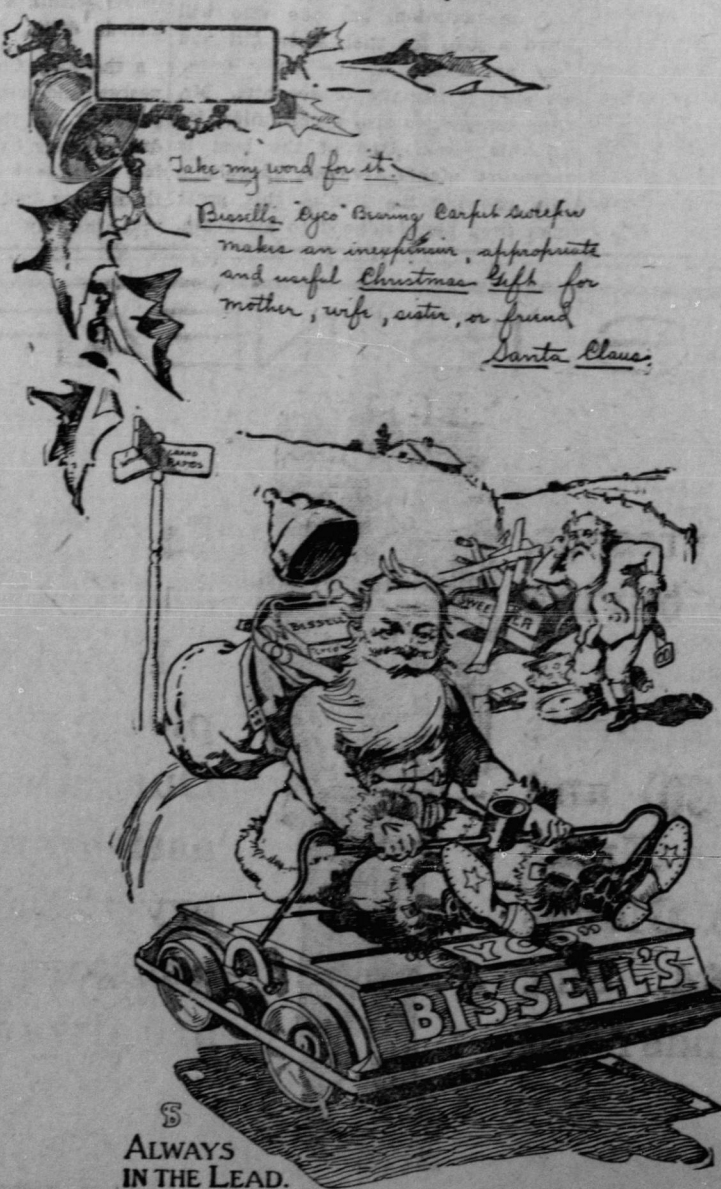 Take my word for it
Bissell's "Cyco" Bearing Carpet Sweeper
makes an inexpensive, appropriate
and useful Christmas Gift for
mother, wife, sister, or friend
Santa Claus.
GRAND
RAPIDS
BISSELL
"CYCO"
BISSELL'S
ALWAYS
IN THE LEAD.